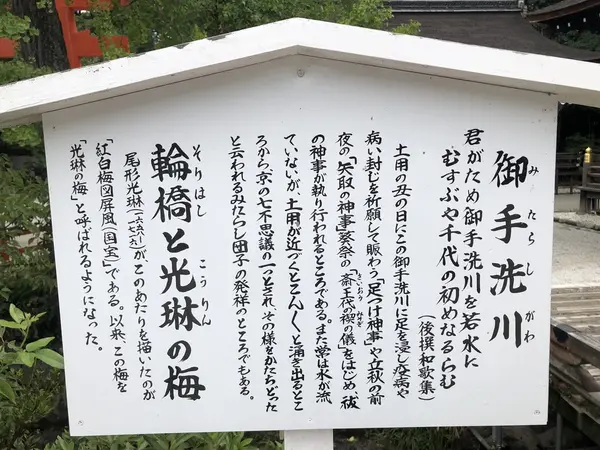 御手洗川
みたらしがわ
君がため御手洗川を若水に
むすぶや千代の初めなるらむ
(後撰和歌集)
土用の丑の日にこの御手洗川に足を浸し疫病や
病い封じを祈願して賑わう「足つけ神事」や立秋の前
夜の「矢取の神事」葵祭の「斎王代の禊の儀」をはじめ、祓
さいおう みぎ
の神事が執り行われるところである。また常は水が流
ていないが、土用が近づくとこん〱と涌き出るとこ
ろから、京の七不思議の一つとされ、その様をかたちどった
と云われるみたらし団子の発祥のところでもある。
輪橋と光琳の梅
そりはし こうりん
尾形光琳(一六五八〜一七一六)がこのあたりを描いたのが
「紅白梅図屏風(国宝)」である。以来、この梅を
「光琳の梅」と呼ばれるようになった。